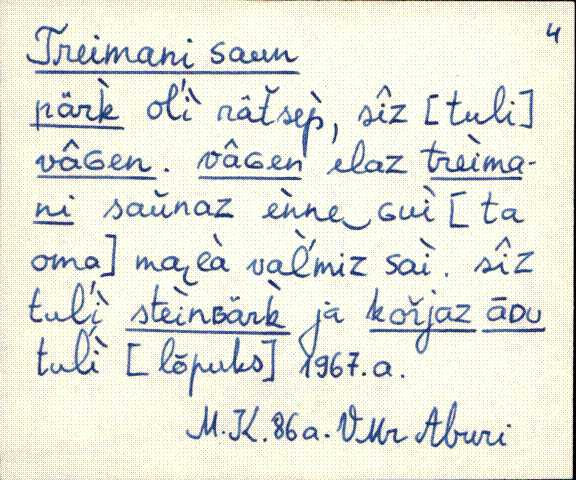 4
Treimani saun
pär̀k olì rät̆sep̀, sîz [tuli]
vâɢen. vâɢen elaz treìma-
ni saŭnaz ènne‿ɢuì [ta
oma] maᶎèà val̀miz saì. sîz
tulì steìnʙär̀k ja kor̆jaz āᴅu
tulì [lõpuks] 1967.a.
M.K. 86 a. VMr Aburi